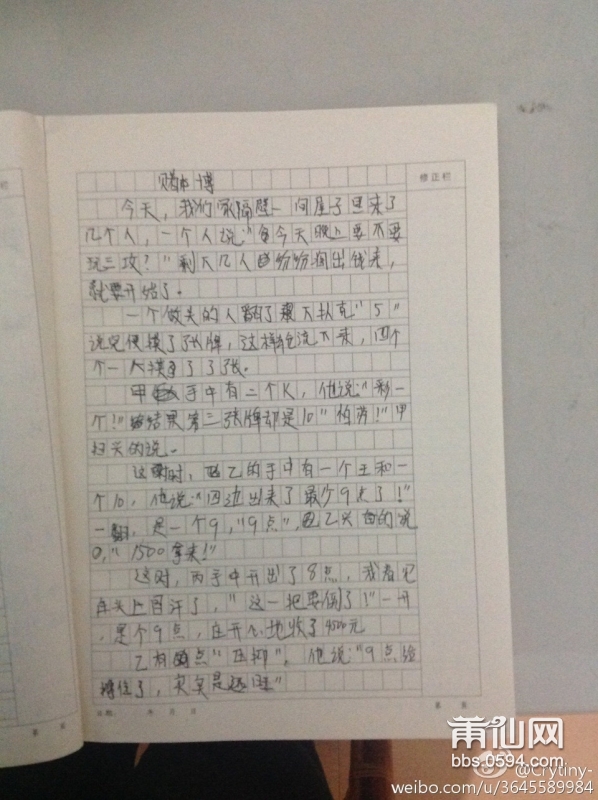 赌博
修正栏
今天，我们家隔壁一间屋子里来了
几个人，一个人说"今天晚上要不要
玩三攻？"剩下几人纷纷掏出钱来，
就要开始了。
一个做头的人翻了下扑克"5"
说完便摸了张牌，这样轮流下来，四个
个一人摸了3张。
甲手中有二个K，他说"彩一
个！"结果第三张牌却是10"怕劳！"甲
扫兴的说。
这时，乙的手中有一个王和一
个10，他说"四边出来了最少9点了！"
一翻，是一个9，"9点"，乙兴奋的说
0，"1500拿来！"
这时，丙手中开出了8点，我看见
庄头上冒汗了，"这一把要倒了！"一开
，是个9点，庄开心地收了4500元
乙有点"压抑"，他说"9点给
搏住了，实实是
日期： 年 月 日
第 页
第 页
莆仙网
bbs.0594.com
@Crytiny-
weibo.com/u/3645589984